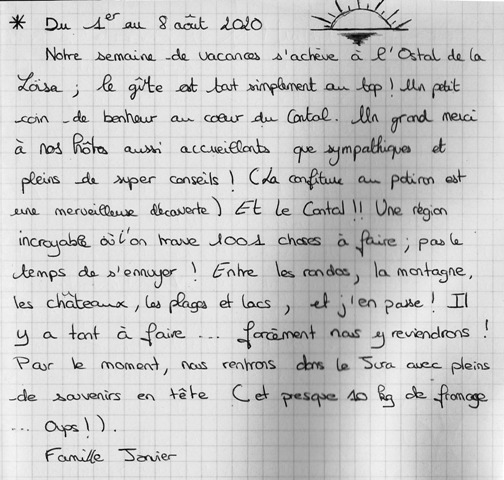 * Du 1er au 8 août 2020
Notre semaine de vacances s'achève à l'Ostal de la
Loïsa ; le gîte est tout simplement au top ! Un petit
coin de bonheur au coeur du Cantal. Un grand merci
à nos hôtes aussi accueillants que sympathiques et
pleins de super conseils ! (La confiture au potiron est
une merveilleuse découverte) Et le Cantal !! Une région
incroyable où l'on trouve 1001 choses à faire ; pas le
temps de s'ennuyer ! Entre les randos, la montagne,
les châteaux, les plages et lacs, et j'en passe ! Il
y a tant à faire ... forcément nous y reviendrons !
Pour le moment, nous rentrons dans le Jura avec pleins
de souvenirs en tête (et presque 10 kg de fromage
... Oups !).
Famille Janier